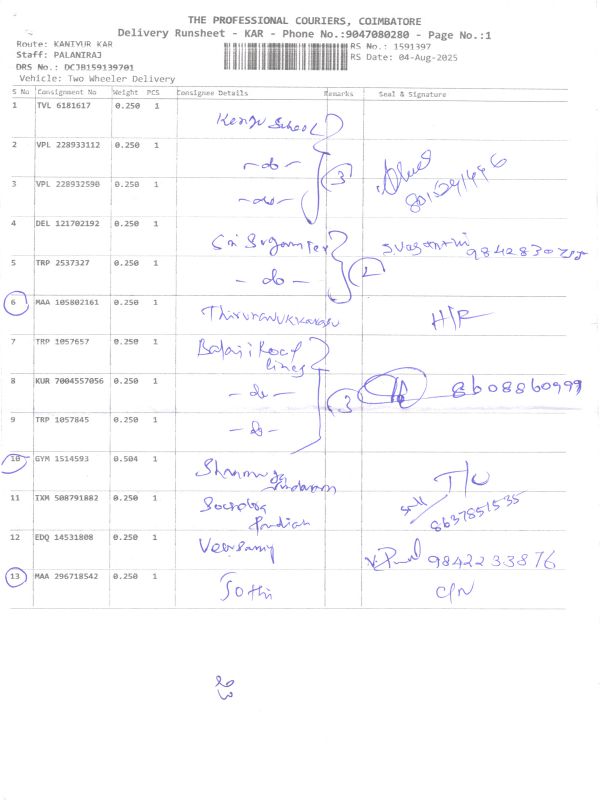 THE PROFESSIONAL COURIERS, COIMBATORE
Delivery Runsheet - KAR - Phone No.:9047080280 - Page No.:1
Route: KANIYUR KAR
RS No.: 1591397
Staff: PALANIRAJ
RS Date: 04-Aug-2025
DRS No.: DCJB159139701
Vehicle: Two Wheeler Delivery
S No Consignment No Weight PCS Consignee Details Remarks Seal & Signature
1 TVL 6181617 0.250 1 School
2 VPL 228933112 0.250 1 -do- 3
3 VPL 228932590 0.250 1 -do-
4 DEL 121702192 0.250 1 Sri
5 TRP 2537327 0.250 1 -do- 2
6 MAA 105802161 0.250 1 H/R
7 TRP 1057657 0.250 1 Balaji Roof lines
8 KUR 7004557056 0.250 1 -do- 3 8608860999
9 TRP 1057845 0.250 1 -do-
10 GYM 1514593 0.504 1
11 IXM 508791882 0.250 1 Pandian 8637851535
12 EDQ 14531808 0.250 1 9842233876
13 MAA 296718542 0.250 1 Jothi C/N